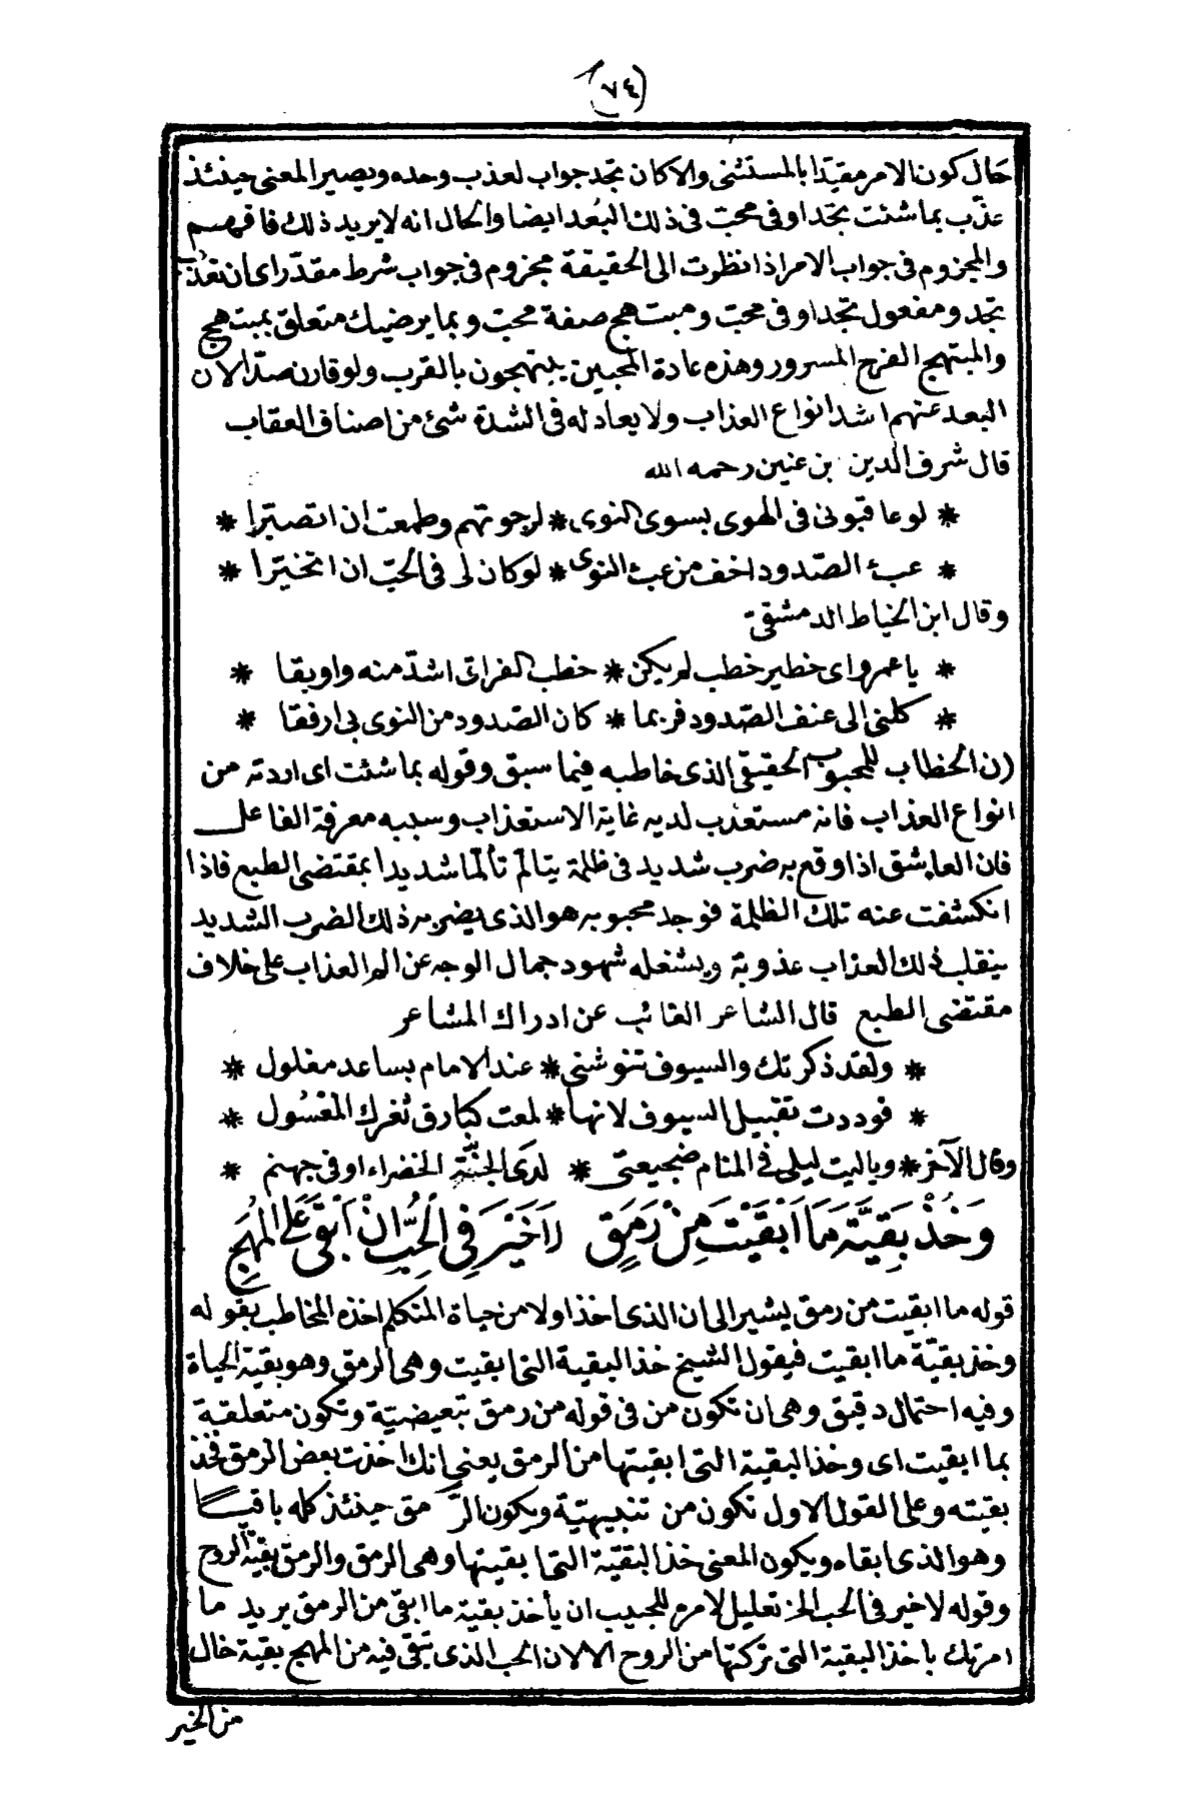 (٧٤)
حال كون الامر مقيدا بالمستثنى والا كان تجد جواب لعذب وحده ويصير المعنى حينئذ
عذّب بما شئت تجد اوفى محبّ فى ذلك البُعد ايضا والحال انه لا يريد ذلك فافهم
والمجزوم فى جواب الامر اذا نظرت الى الحقيقة مجزوم فى جواب شرط مقدّر اى ان تعذّب
تجد ومفعول تجد اوفى محبّ ومبتهج صفة محبّ وبما يرضيك متعلق بمبتهج
والمبتهج الفرح المسرور وهذه عادة المحبين يبتهجون بالقرب ولو قارن صدّا لان
البعد عندهم اشد انواع العذاب ولا يعادله فى الشدة شئ من اصناف العقاب
قال شرف الدين بن عنين رحمه الله
* لو عاقبونى فى الهوى بسوى النوى * لرجوتهم وطمعت ان اتصبّرا *
* عبء الصّدود اخف من عبء النوى * لو كان لى فى الحبّ ان اتخيّرا *
وقال ابن الخياط الدمشقىّ
* يا عمرو اى خطير خطب لم يكن * خطب الفراق اشدّ منه واوبقا *
* كلنى الى عنف الصّدود فربما * كان الصّدود من النوى بى ارفقا *
(ن) الخطاب للمحبوب الحقيقى الذى خاطبه فيما سبق وقوله بما شئت اى اردته من
انواع العذاب فانه مستعذب لديه غاية الاستعذاب وسببه معرفة الفاعل
فان العاشق اذا وقع به ضرب شديد فى ظلمة يتالّم تألّما شديدا بمقتضى الطبع فاذا
انكشفت عنه تلك الظلمة فوجد محبوبه هو الذى يضربه ذلك الضرب الشديد
ينقلب ذلك العذاب عذوبة ويشغله شهود جمال الوجه عن الم العذاب على خلاف
مقتضى الطبع قال الشاعر الغائب عن ادراك المشاعر
* ولقد ذكرتك والسيوف تنوشنى * عند الامام بساعد مغلول *
* فوددت تقبيل السيوف لانها * لمعت كبارق ثغرك المغسُول *
وقال الآخر * وياليت ليلى فى المنام ضجيعتى * لدَى الجنّة الخضراء او فى جهنم *
وَخُذْ بَقِيَّةَ مَا اَبْقَيْتَ مِنْ رَمَقٍ لاَ خَيْرَ فِى الْحُبِّ اِنْ اَبْقَى عَلَى الْمُهَجِ
قوله ما ابقيت من رمق يشير الى ان الذى اخذ اولا من حياة المتكلم اخذه المخاطب بقوله
وخذ بقيّة ما ابقيت فيقول الشيخ خذ البقية التى ابقيت وهى الرمق وهو بقية الحياة
وفيه احتمال دقيق وهى ان تكون من فى قوله من رمق تبعيضيّة وتكون متعلقة
بما ابقيت اى وخذ البقية التى ابقيتها من الرمق يعنى انك اخذت بعض الرمق فخذ
بقيته وعلى القول الاول تكون من تنبيهيّة ويكون الرّمق حينئذ كله باقيًا
وهو الذى ابقاه ويكون المعنى خذ البقيّة التى ابقيتها وهى الرمق والرمق بقيّة الروح
وقوله لا خير فى الحب الخ تعليل لامره للحبيب ان ياخذ بقية ما ابقى من الرمق يريد ما
امرتك باخذ البقية التى تركتها من الروح الا لان الحب الذى تبقى فيه من المهج بقية خال
من الخير